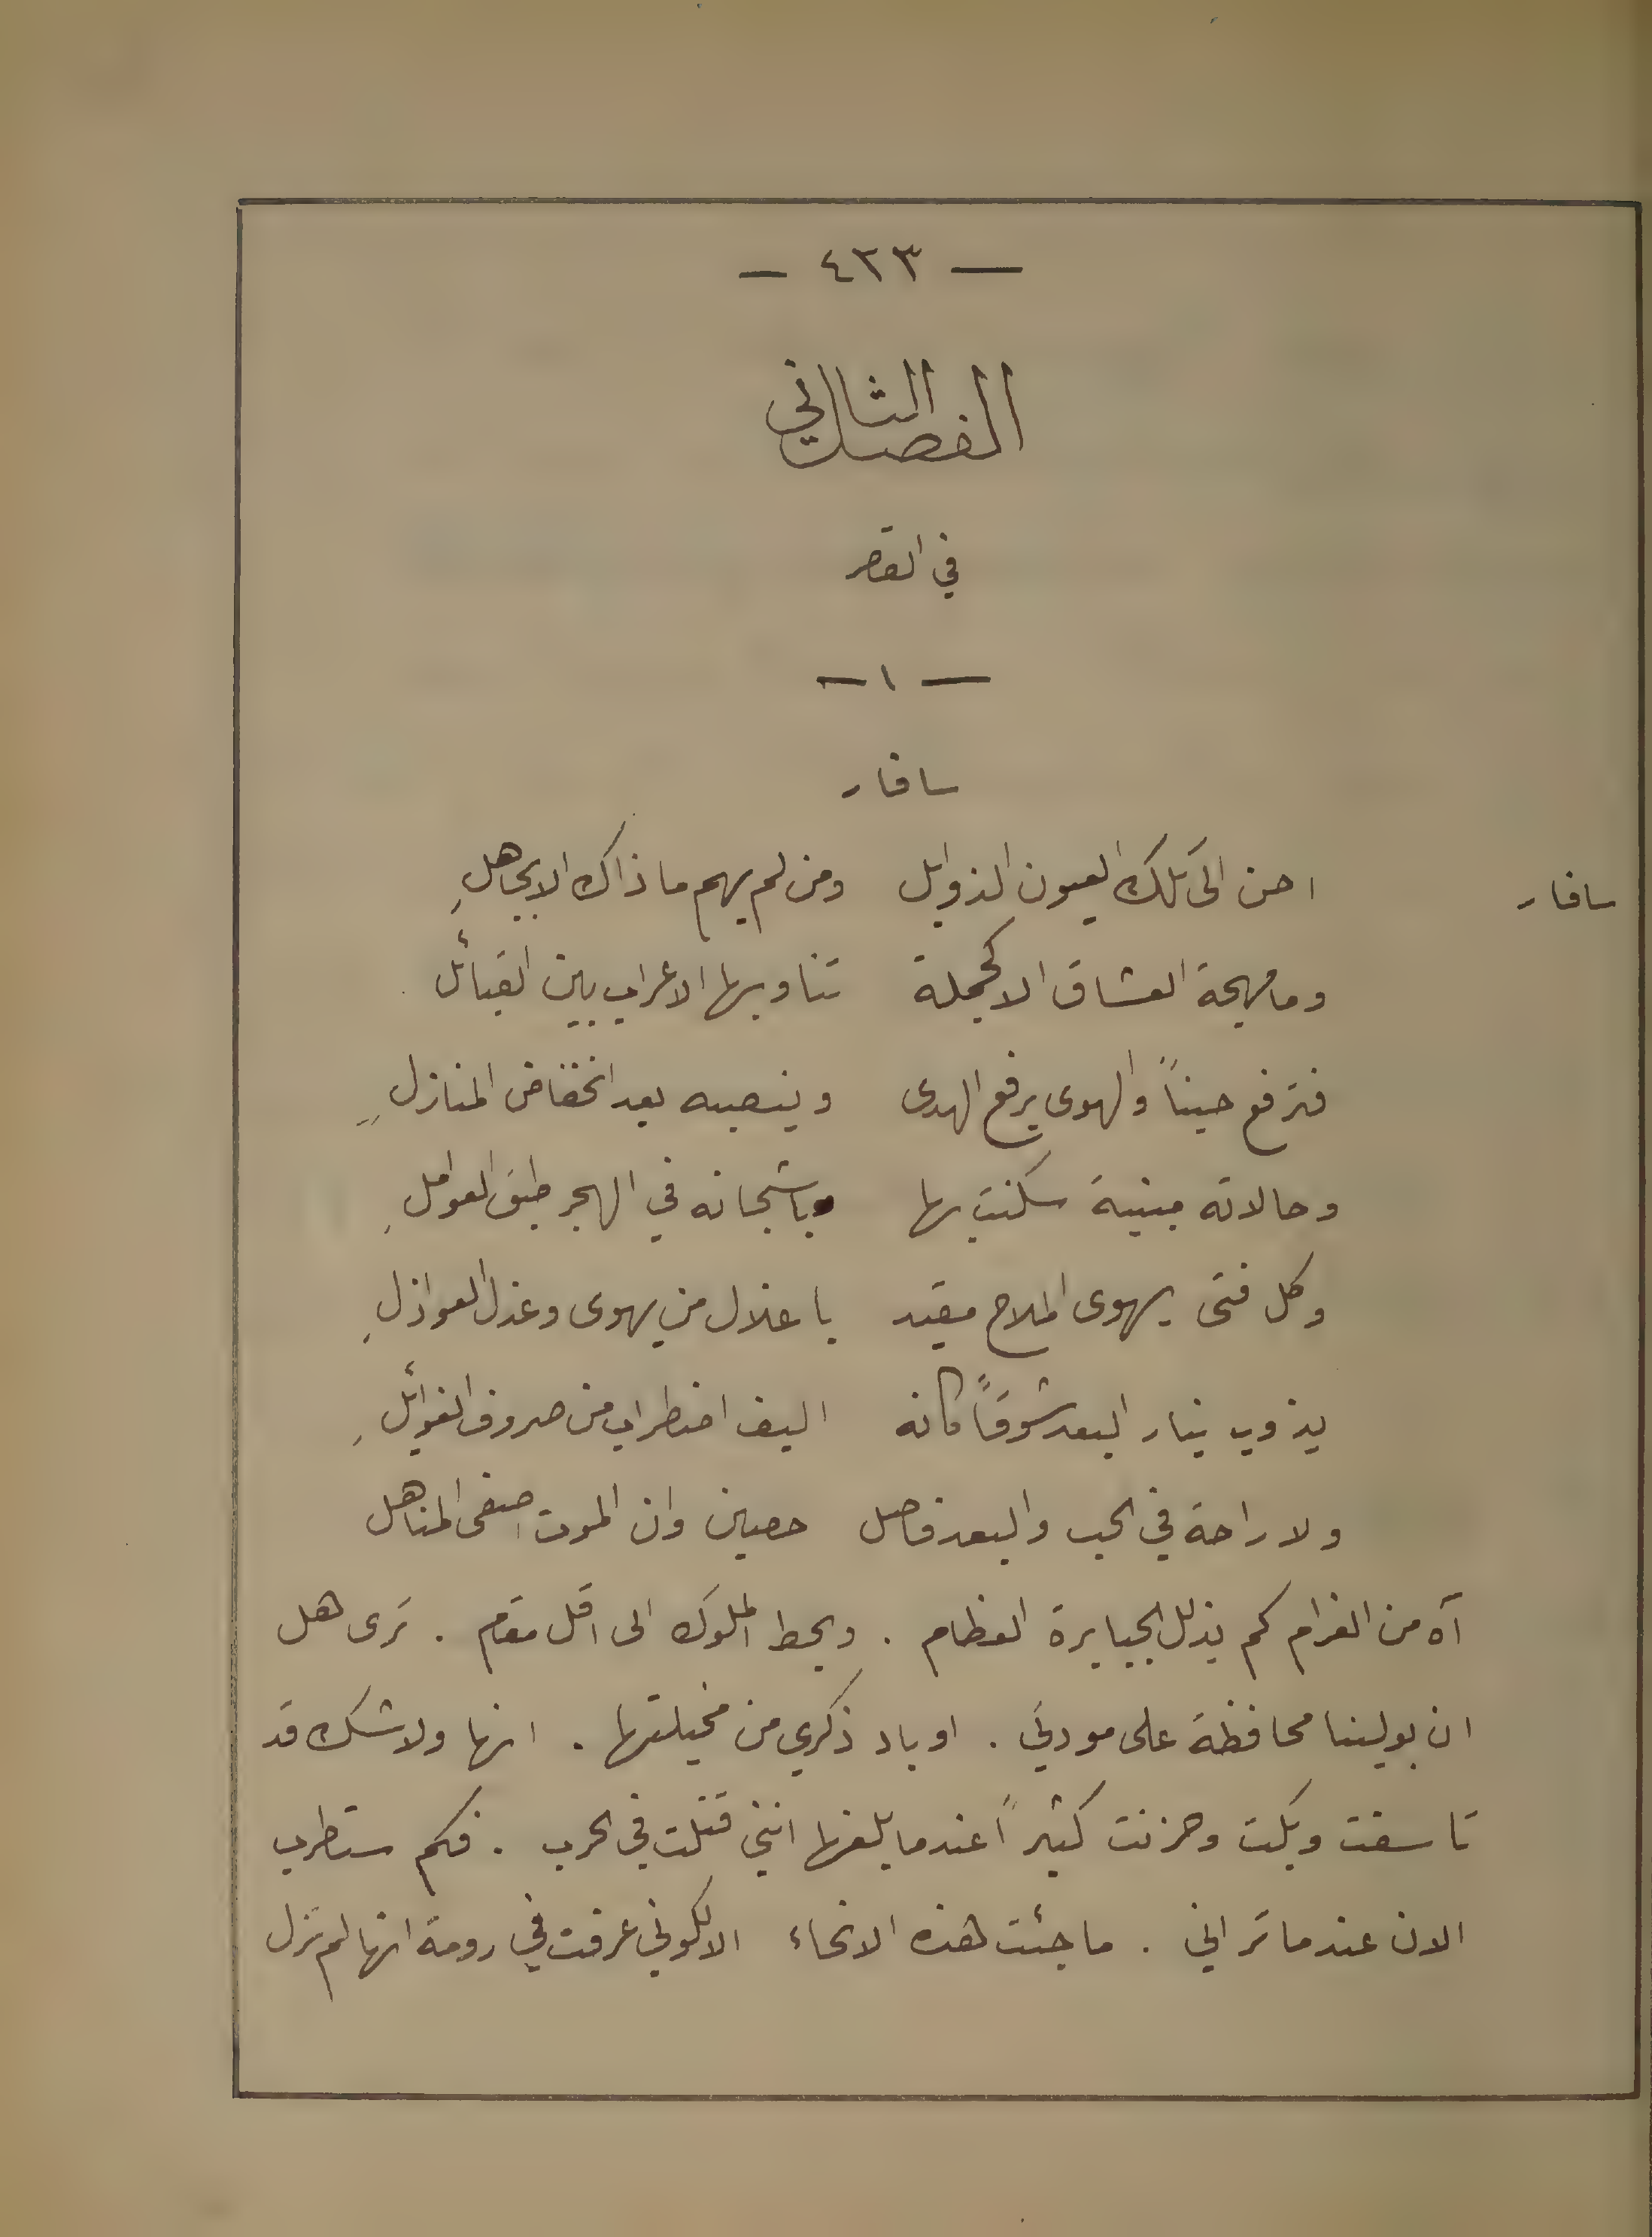 — ٤٣٣ —
الفصل الثاني
في القصر
— ١ —
سافار
سافار احن الى تلك العيون الذوابل ومن لم يهم ما ذاك الا بجاهلِ
وما مهجة العشاق الا كجملة تناوبها الاعراب بين القبائل
فترفع حيناً والهوى يرفع الهدى وينصبه بعد انخفاض المنازل
وحالاته مبنية سكنت بها باشجانه في الهجر طبق العواملِ
وكل فتى يهوى الملاح مقيد باغلال من يهوى وعذل العواذلِ
يذوب بنار البعد شوقاً كانه اليف اضطراب من صروف الغوائلِ
ولا راحة في الحب والبعد فاصل حصين وان الموت اصفى المناهل
آه من الغرام كم يذلل الجبابرة العظام . ويحط الملوك الى اقل مقام . ترى هل
ان بولينا محافظة على مودتي . او باد ذكري من مخيلتها . انها ولا شك قد
تاسفت وبكت وحزنت كثيراً عندما بلغها انني قتلت في الحرب . فكم ستطرب
الان عندما تراني . ما جئت هذه الانحاء الا لكوني عرفت في رومة انها لم تزل